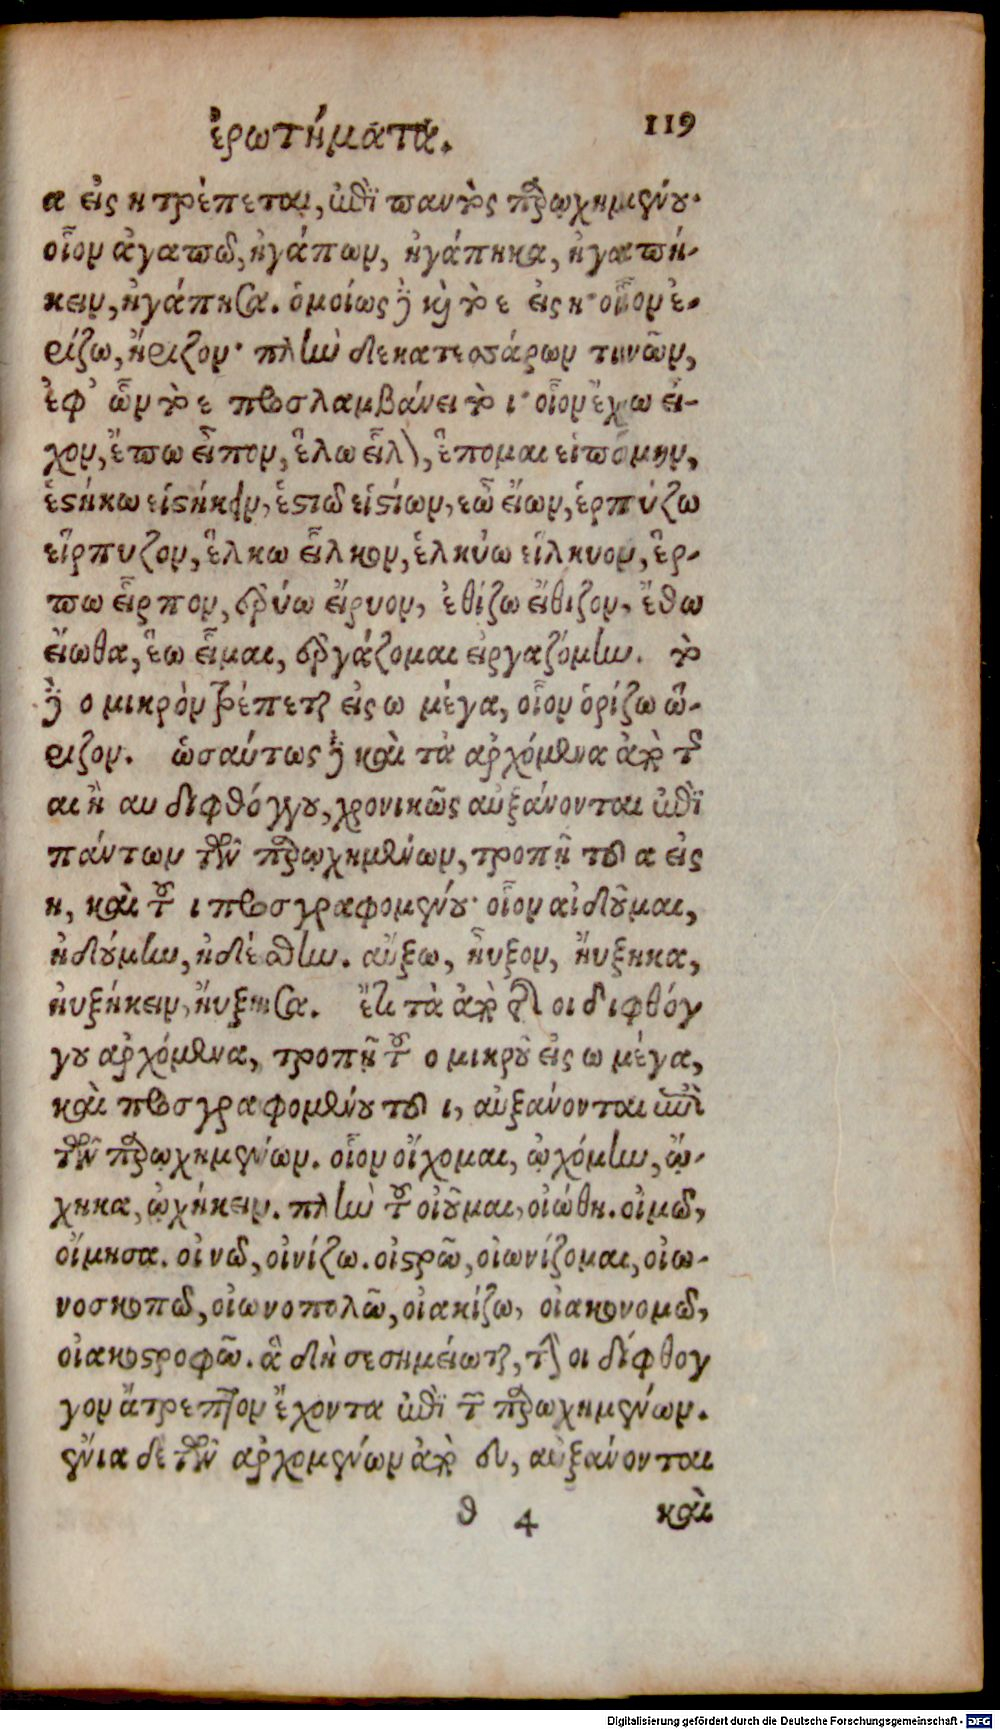 ἐρωτήματα. 119
α εἰς η τρέπεται, ἐπὶ παντὸς παρῳχημένου·
οἷον ἀγαπῶ, ἠγάπων, ἠγάπηκα, ἠγαπή-
κειν, ἠγάπησα. ὁμοίως δὲ καὶ τὸ ε εἰς η· οἷον ἐ-
ρίζω, ἤριζον· πλὴν δεκατεσσάρων τινῶν,
ἐφ' ὧν τὸ ε προσλαμβάνει τὸ ι· οἷον ἔχω εἶ-
χον, ἔπω εἶπον, ἕλω εἷλον, ἕπομαι εἱπόμην,
ἑστήκω εἱστήκειν, ἑστιῶ εἱστίων, ἐῶ εἴων, ἑρπύζω
εἵρπυζον, ἕλκω εἷλκον, ἑλκύω εἵλκυον, ἕρ-
πω εἷρπον, ἐρύω εἴρυον, ἐθίζω εἴθιζον, ἔθω
εἴωθα, ἕω εἷμαι, ἐργάζομαι εἰργαζόμην. τὸ
δὲ ο μικρὸν τρέπεται εἰς ω μέγα, οἷον ὁρίζω ὥ-
ριζον. ὡσαύτως δὲ καὶ τὰ ἀρχόμενα ἀπὸ τῆς
αι ἢ αυ διφθόγγου, χρονικῶς αὐξάνονται ἐπὶ
πάντων τῶν παρῳχημένων, τροπῇ τοῦ α εἰς
η, καὶ τοῦ ι προσγραφομένου· οἷον αἰδοῦμαι,
ᾐδούμην, ᾐδέσθην. αὔξω, ηὖξον, ηὔξηκα,
ηὐξήκειν, ηὔξησα. ἔτι τὰ ἀπὸ τῆς οι διφθόγ
γου ἀρχόμενα, τροπῇ τοῦ ο μικροῦ εἰς ω μέγα,
καὶ προσγραφομένου τοῦ ι, αὐξάνονται ἐπὶ
τῶν παρῳχημένων. οἷον οἴχομαι, ᾠχόμην, ᾤ-
χηκα, ᾠχήκειν. πλὴν τοῦ οἰοῦμαι, οἰώθη. οἰμῶ,
οἴμησα. οἰνῶ, οἰνίζω. οἰστρῶ, οἰωνίζομαι, οἰω-
νοσκοπῶ, οἰωνοπολῶ, οἰακίζω, οἰακονομῶ,
οἰακοστροφῶ. ἃ δὴ σεσημείωται, τὴν οι δίφθογ
γον ἄτρεπτον ἔχοντα ἐπὶ τῶν παρῳχημένων.
ἔνια δὲ τῶν ἀρχομένων ἀπὸ ευ, αὐξάνονται
θ 4 καὶ
Digitalisierung gefördert durch die Deutsche Forschungsgemeinschaft - DFG